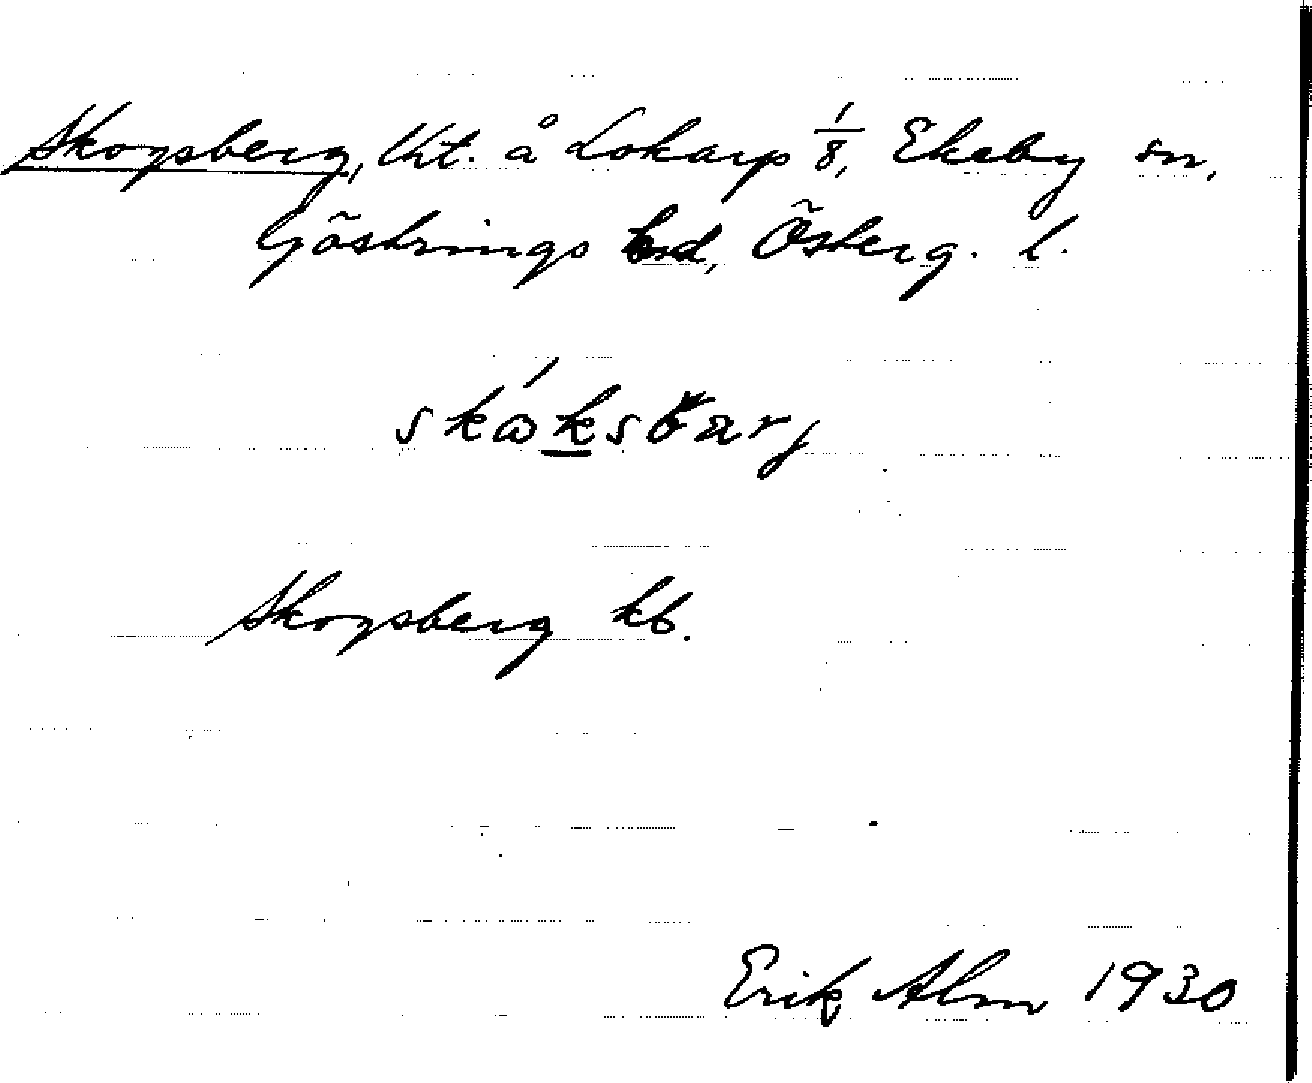 Skogsberg, lht. å Lokarp 1/8, Ekeby sn,
Göstrings hd, Österg. l.
skɷ́ksbærj
Skogsberg kb.
Erik Alm 1930